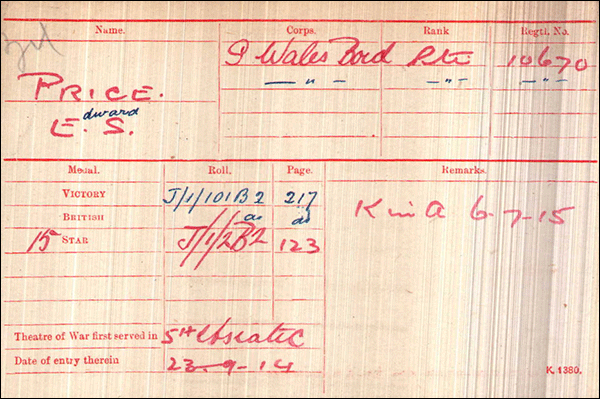 Name. Corps. Rank Regtl. No.
S Wales Bord Pte 10670
— " — — " — — " —
PRICE.
dward
E. S.
Medal. Roll. Page. Remarks.
VICTORY J/1/101B2 217
BRITISH do do K in A 6-7-15
15 STAR J/1/2B2 123
Theatre of War first served in 5A Asiatic
Date of entry therein 23-9-14
K. 1380.